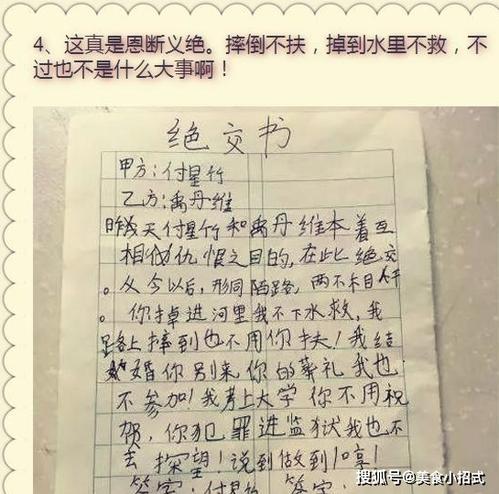 4、这真是恩断义绝。摔倒不扶，掉到水里不救，不
过也不是什么大事啊！
绝交书
甲方：付星竹
乙方：禹丹维
昨天付星竹和禹丹维本着互
相仇恨之目的，在此绝交
。从今以后，形同陌路，两不相
。你掉进河里我不下水救，我
路上摔到也不用你扶！我结
婚你别来，你的葬礼我也
不参加！我考上大学你不用祝
贺，你犯罪进监狱我也不
去探望！说到做到！
签字：付星竹 签字：
搜狐号@美食小招式